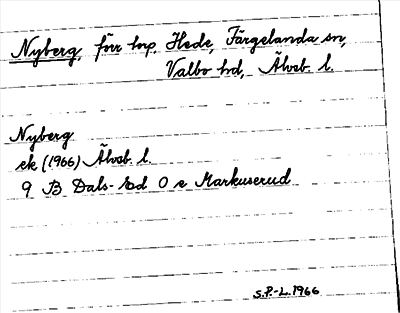 Nyberg, förr tnp, Hede, Färgelanda sn,
Valbo hd, Älvsb. l.
Nyberg
ek (1966) Älvsb l.
9 B Dals-Ed 0 e Markuserud
S.P.-L. 1966